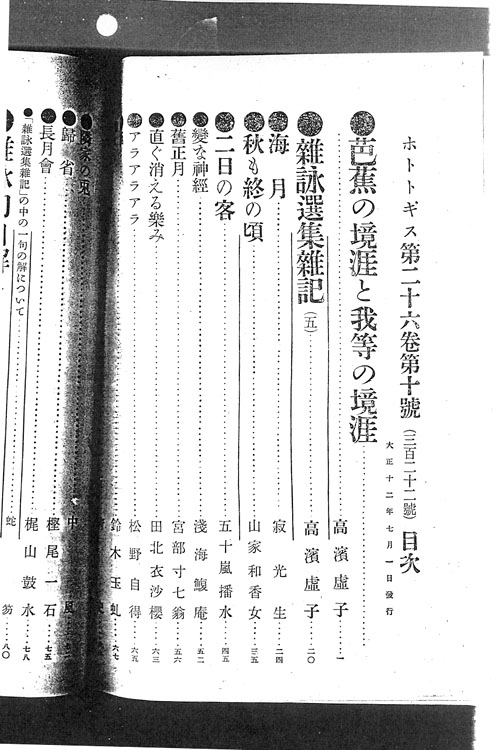 ホトトギス第二十六卷第十號（三百二十二號）目次
大正十二年七月一日發行
●芭蕉の境涯と我等の境涯
高濱虛子……一
●雜詠選集雜記（五）……高濱虛子……二〇
●海月……寂光生……二四
●秋も終の頃……山家和香女……三五
●二日の客……五十嵐播水……四五
●變な神經……淺海鰒庵……五二
●舊正月……宮部寸七翁……五六
●直ぐ消える樂み……田北衣沙櫻……六三
●アラアラアラ……松野自得……六五
鈴木玉虬……六七
の頃
●歸省……中
●長月會……樫尾一石……七五
●「雜詠選集雜記」の中の一句の解について……梶山鼓水……七八
笏……八〇